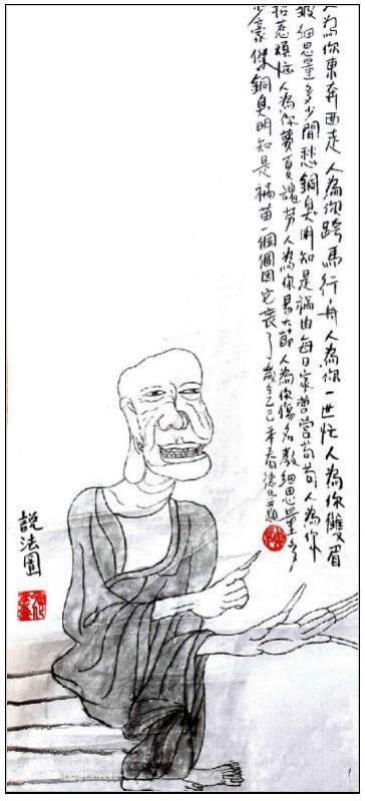 人為你東奔西走人為你跨馬行舟人為你一世忙人為你雙眉
皺細思量多少閒愁銅臭明知是禍由每日家營營苟苟人為你
招惹煩惱人為你夢魂勞人為你易大節人為你傷名教細思量多
少豪傑銅臭明知是禍苗一個個因它喪了歲己年春題
說法圖